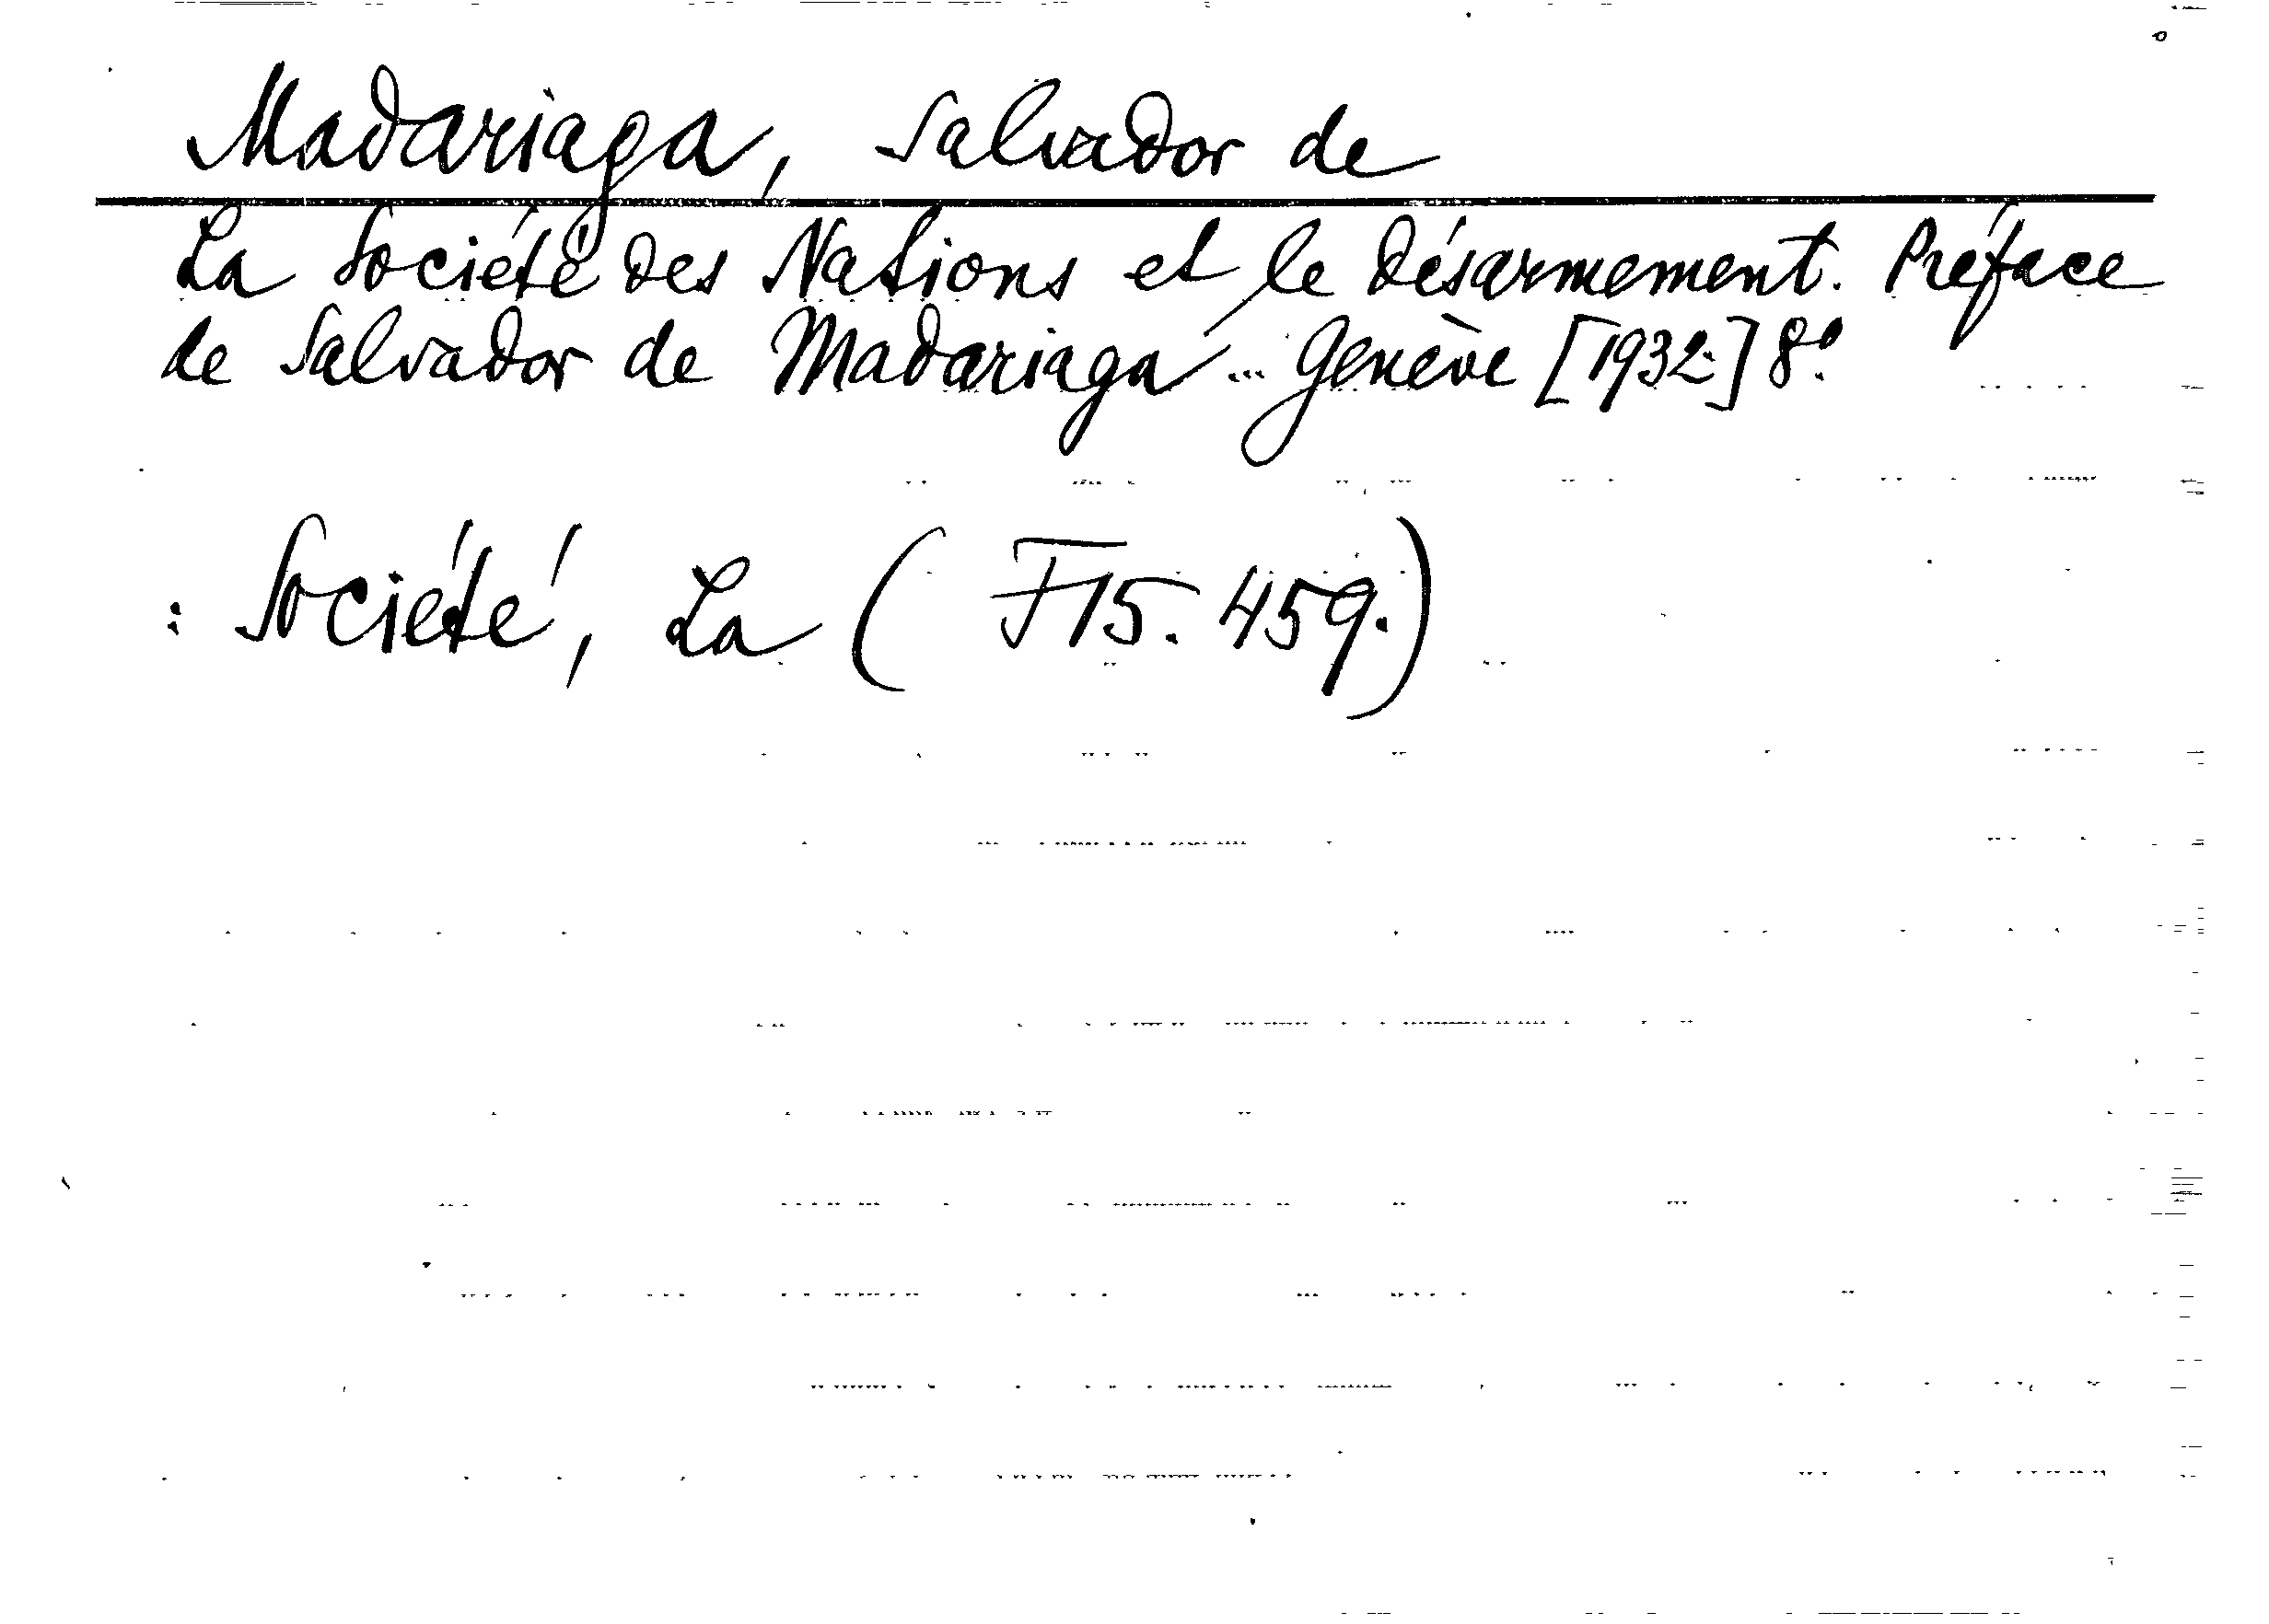 Madariaga, Salvador de
La Société des Nations et le désarmement. Préface
de Salvador de Madariaga... Genève [1932.] 8º.
: Société, La ( F15. 459.)